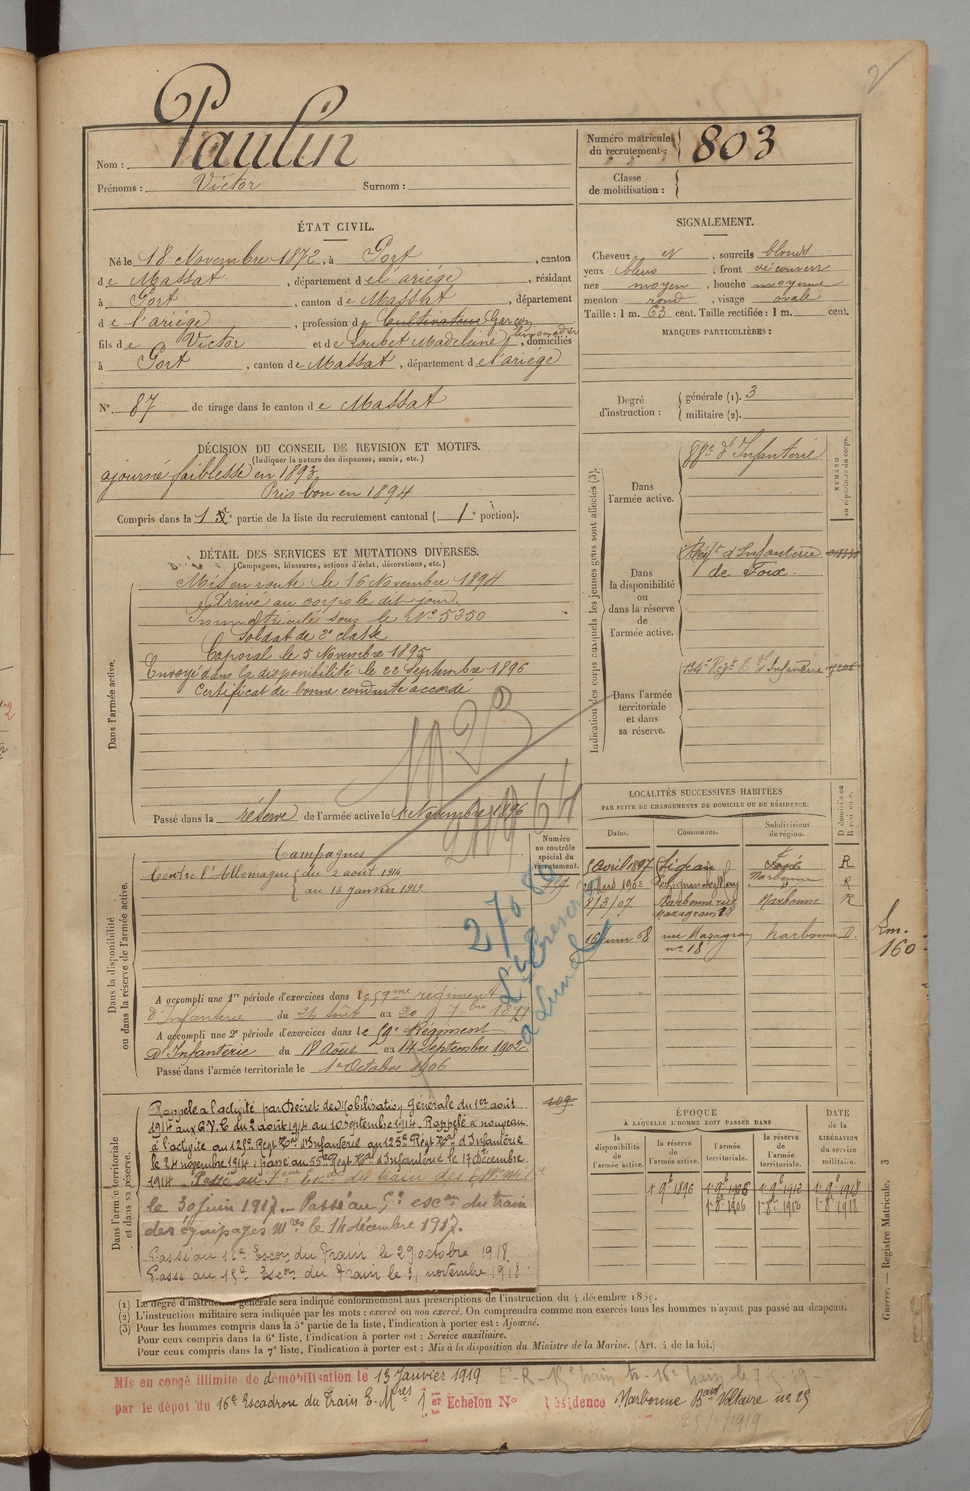 2
Nom : Paulin
Prénoms : Victor Surnom :
Numéro matricule du recrutement : 803
Classe de mobilisation :
ÉTAT CIVIL.
Né le 18 Novembre 1872, à Port, canton
de Massat, département de l'ariége, résidant
à Port, canton de Massat, département
de l'ariége, profession de Cultivateur Garçon limonadier
fils de Victor et de Loubet Madeleine, domiciliés
à Port, canton de Massat, département de l'ariége
N° 87 de tirage dans le canton de Massat
SIGNALEMENT.
Cheveux N, sourcils blonds
yeux bleus, front découvert
nez moyen, bouche moyenne
menton rond, visage ovale
Taille : 1 m. 63 cent. Taille rectifiée : 1 m. cent.
MARQUES PARTICULIÈRES :
Degré d'instruction : générale (1). 3
militaire (2).
DÉCISION DU CONSEIL DE REVISION ET MOTIFS.
(Indiquer la nature des dispenses, sursis, etc.)
ajourné faiblesse en 1893
Pris bon en 1894
Compris dans la 1e partie de la liste du recrutement cantonal (1e portion).
DÉTAIL DES SERVICES ET MUTATIONS DIVERSES.
(Campagnes, blessures, actions d'éclat, décorations, etc.)
Dans l'armée active.
Mis en route le 16 Novembre 1894
Arrivé au corps le dit jour
Immatriculé sous le N° 5350
Soldat de 2e classe
Caporal le 5 Novembre 1895
Envoyé dans la disponibilité le 22 Septembre 1896
Certificat de bonne conduite accordé
Passé dans la réserve de l'armée active le 1er Novembre 1896
Indication des corps auxquels les jeunes gens sont affectés (3).
NUMÉRO au répertoire du corps.
Dans l'armée active.
d'Infanterie
Dans la disponibilité ou dans la réserve de l'armée active.
Régt d'Infanterie
de Foix.
Dans l'armée territoriale et dans sa réserve.
134e Régt d'Infanterie
LOCALITÉS SUCCESSIVES HABITÉES
PAR SUITE DE CHANGEMENTS DE DOMICILE OU DE RÉSIDENCE.
Dates. Communes. Subdivisions de région. D domicile ou R résidence.
5 Avril 1897 R
1902 Narbonne R
8/3/07 Narbonne rue Mazagran 28 Narbonne R
15 juin 08 rue Mazagran n° 18 Narbonne D.
Lm.
160
Dans la disponibilité ou dans la réserve de l'armée active.
Numéro au contrôle spécial du recrutement.
Campagnes
Contre l'Allemagne du 2 août 1914
au 13 janvier 1919
A accompli une 1re période d'exercices dans le 59me régiment
d'Infanterie du 24 août au 20 7bre 1899
A accompli une 2e période d'exercices dans le Régiment
d'Infanterie du 18 Août au 14 Septembre 1902
Passé dans l'armée territoriale le 1er Octobre 1906
Dans l'armée territoriale et dans sa réserve.
Rappelé à l'activité par Décret de Mobilisation Générale du 1er août
1914 aux G.V.C. du 2 août 1914 au 10 septembre 1914. Rappelé à nouveau
à l'activité au 125e Régt Tal d'Infanterie
le 24 novembre 1914; passé au 55e Régt Tal d'Infanterie le 17 Décembre
1914
le 30 juin 1917. Passé au 5e escon du train
des équipages mres le 14 décembre 1917.
Passé au 16e Escon du Train le 29 octobre 1918
Passé au 15e Escon du Train le 21 novembre 1918
ÉPOQUE
À LAQUELLE L'HOMME DOIT PASSER DANS
la disponibilité de l'armée active. la réserve de l'armée active. l'armée territoriale. la réserve de l'armée territoriale.
DATE de la LIBÉRATION du service militaire.
1er 9bre 1896 1er 9bre 1906 1er 9bre 1912 1er 9bre 1918
1er 8bre 1906 1er 8bre 1912 1er 8bre 1918
Guerre. — Registre Matricule. 3
(1) Le degré d'instruction générale sera indiqué conformément aux prescriptions de l'instruction du 4 décembre 1889.
(2) L'instruction militaire sera indiquée par les mots : exercé ou non exercé. On comprendra comme non exercés tous les hommes n'ayant pas passé au drapeau.
(3) Pour les hommes compris dans la 5e partie de la liste, l'indication à porter est : Ajourné.
Pour ceux compris dans la 6e liste, l'indication à porter est : Service auxiliaire.
Pour ceux compris dans la 7e liste, l'indication à porter est : Mis à la disposition du Ministre de la Marine. (Art. 4 de la loi.)
Mis en congé illimité de démobilisation le 13 Janvier 1919
par le dépôt du 16e Escadron du Train E. Mres 1er Echelon N° Résidence Narbonne Bard Voltaire no 25